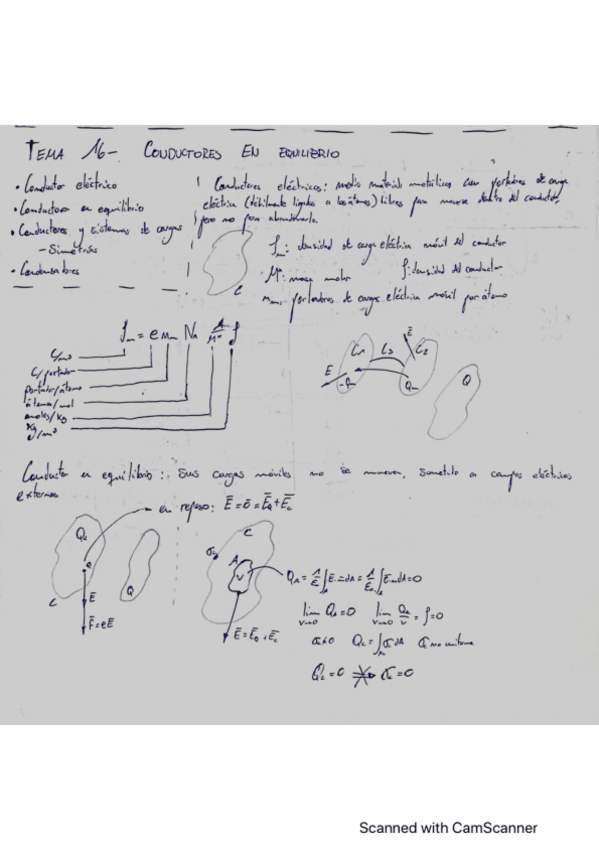 TEMA 16- CONDUCTORES EN EQUILIBRIO
• Conductor eléctrico
• Conductores en equilibrio
• Conductores y sistemas de cargas
- Simetrías
• Condensadores
Conductores eléctricos: medio material metálicos con portadores de carga
eléctrica (débilmente ligados a los átomos) libres para moverse dentro del conductor,
pero no para abandonarla.
C
ρm: densidad de carga eléctrica móvil del conductor
M*: masa molar ρ: densidad del conductor
mm: portadores de carga eléctrica móvil por átomo
ρm = e mm NA 1/M* ρ
C/m³
C/portador
portador/átomo
átomo/mol
moles/kg
kg/m³
E C1 C3 C2 E
-Qm Qm Q
Conductor en equilibrio:: sus cargas móviles no se mueven, sometido a campos eléctricos
externos
en reposo: E = 0 = EQ + Ec
Qc e Q C
E
F=eE
C σc A V
E = EQ + Ec
lim V→0 QA = 0 lim V→0 QA/V = ρ = 0
σ≠0 Qc = ∫ σ dA σ no uniforme
Qc = 0 σc = 0